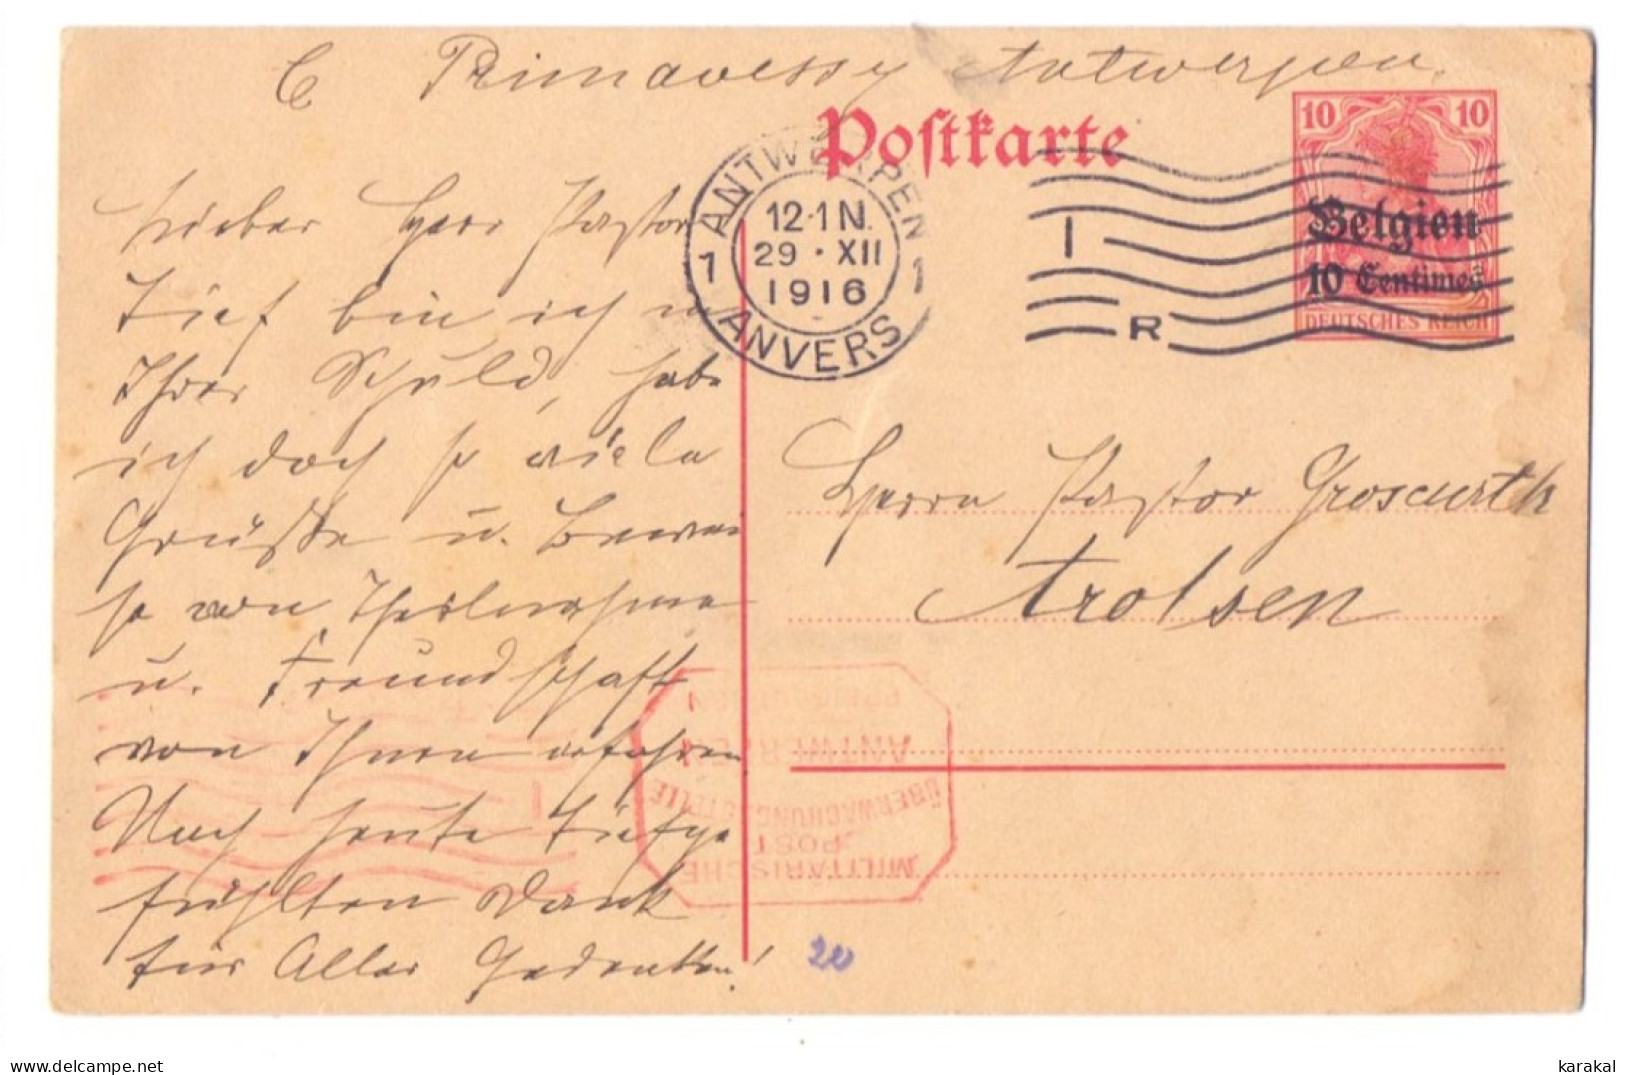 C Primavessy Antwerpen.
Postkarte
10 10
Belgien
10 Centimes
DEUTSCHES REICH
ANTWERPEN
1 12-1 N. 1
29 · XII
1916
ANVERS
I
R
Lieber Herr Pastor
Tief bin ich in
Ihrer Schuld, habe
ich doch so viele
Grüße u. Bewei
se von Theilnahme
u. Freundschaft
von Ihnen erfahren
Noch heute tiefge
fühlten Dank
für Alles Gedenken!
Herrn Pastor Groscurth
Arolsen
MILITÄRISCHE
POST
ÜBERWACHUNGSSTELLE
ANTWERPEN
I
20
karakal